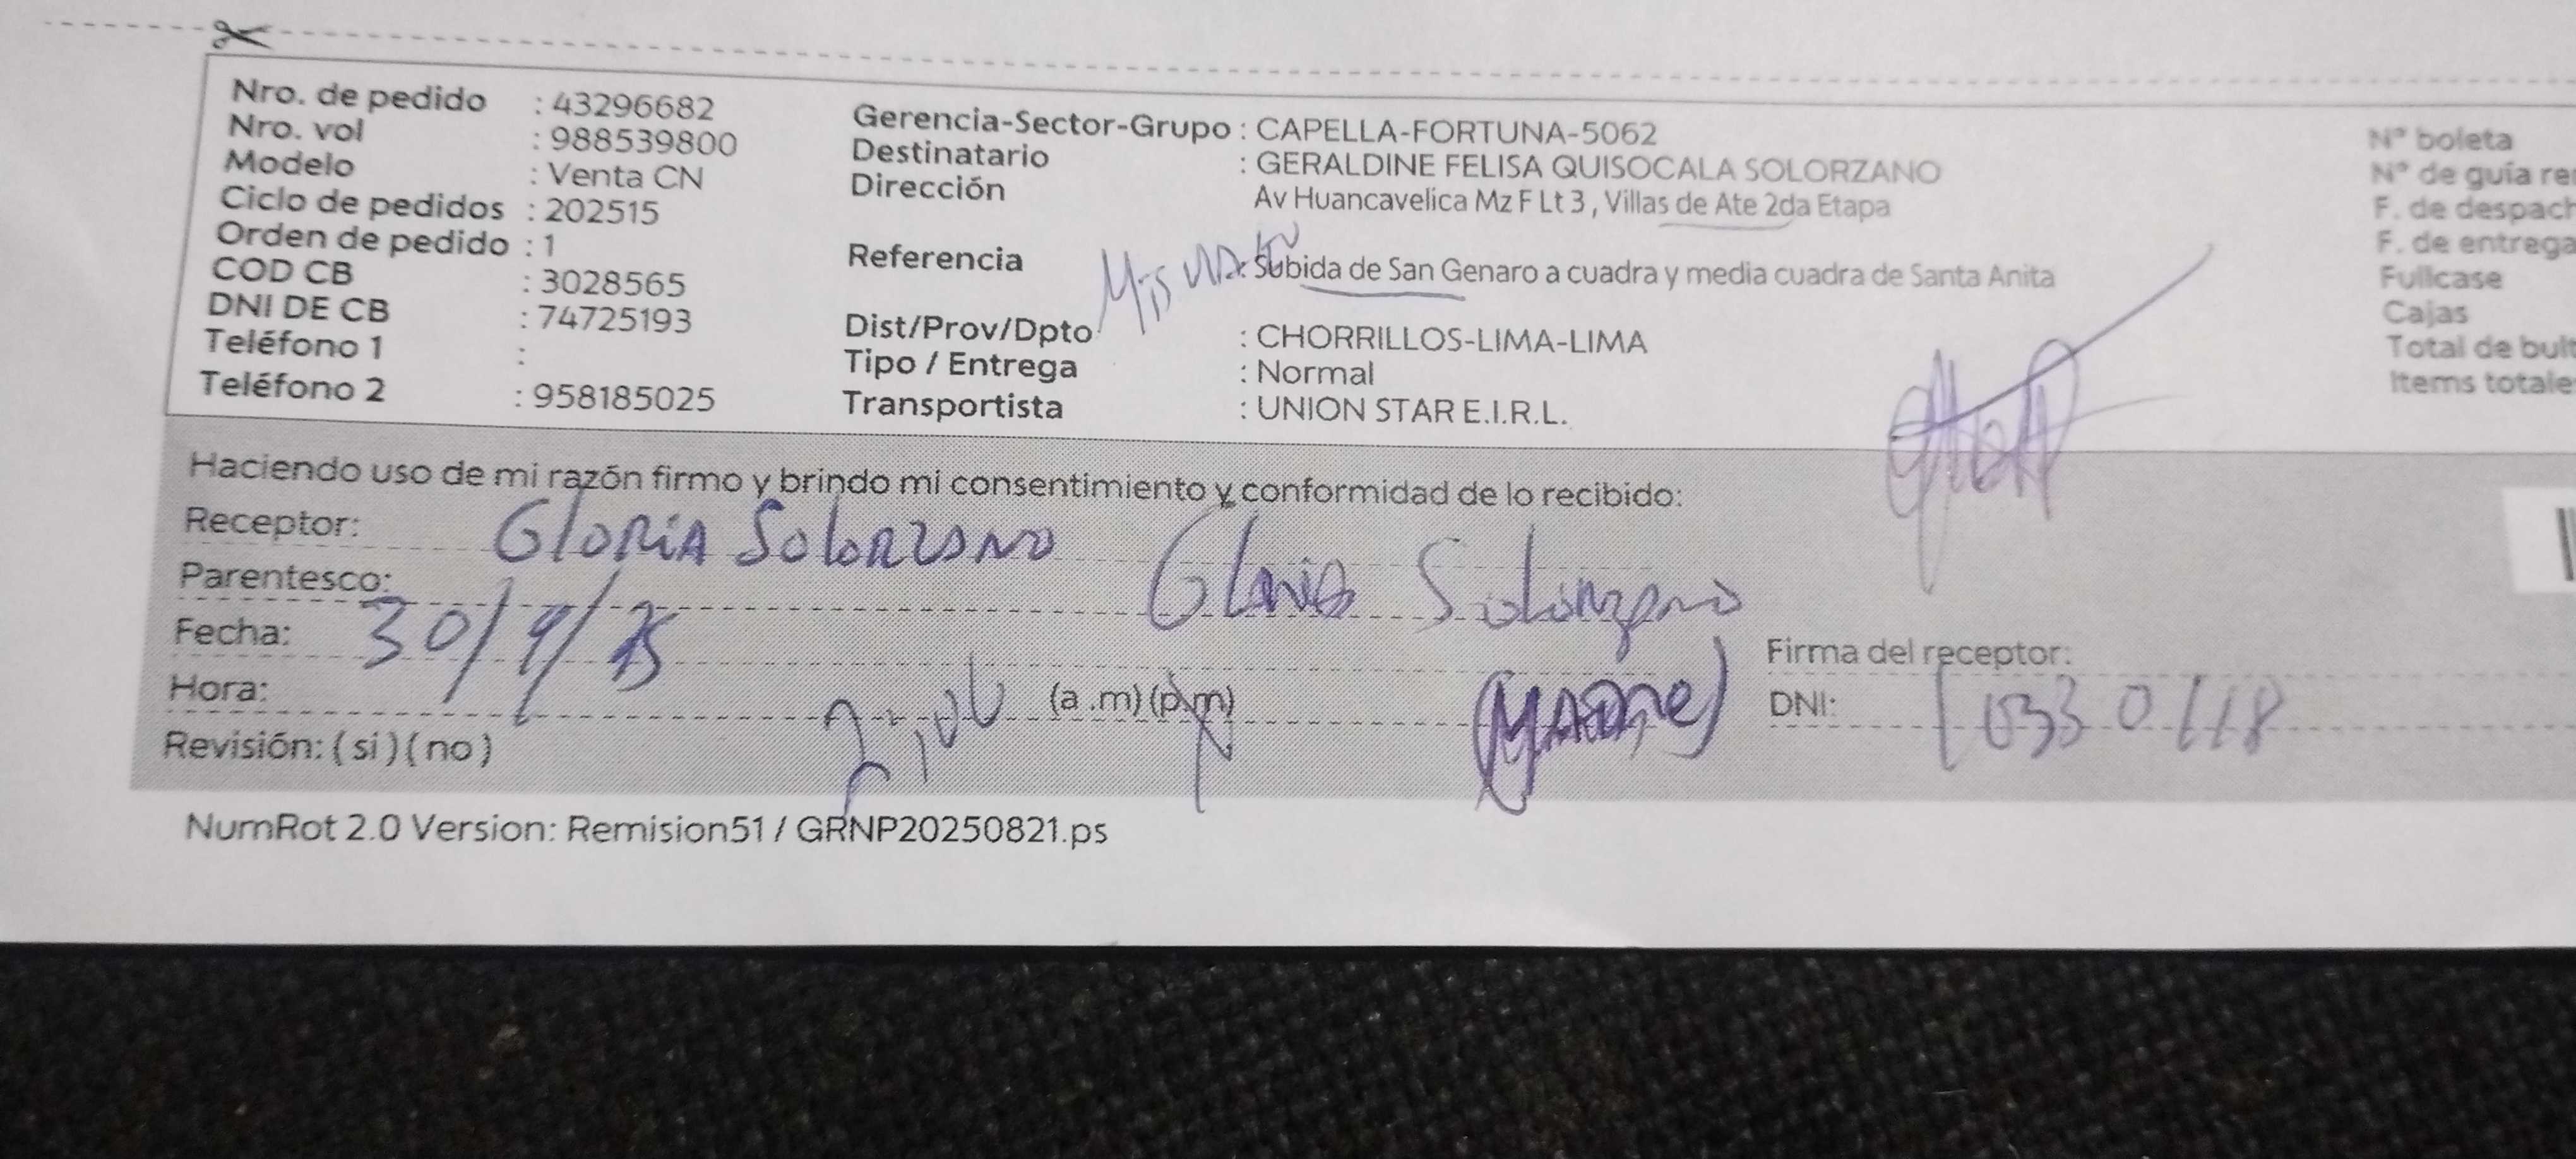 Nro. de pedido : 43296682
Nro. vol : 988539800
Modelo : Venta CN
Ciclo de pedidos : 202515
Orden de pedido : 1
COD CB : 3028565
DNI DE CB : 74725193
Teléfono 1 :
Teléfono 2 : 958185025
Gerencia-Sector-Grupo : CAPELLA-FORTUNA-5062
Destinatario : GERALDINE FELISA QUISOCALA SOLORZANO
Dirección Av Huancavelica Mz F Lt 3, Villas de Ate 2da Etapa
Referencia : Subida de San Genaro a cuadra y media cuadra de Santa Anita
Dist/Prov/Dpto : CHORRILLOS-LIMA-LIMA
Tipo / Entrega : Normal
Transportista : UNION STAR E.I.R.L.
N° boleta
N° de guía
F. de despach
F. de entrega
Fullcase
Cajas
Total de bult
Items totale
Haciendo uso de mi razón firmo y brindo mi consentimiento y conformidad de lo recibido:
Receptor: GLORIA SOLORZANO
Parentesco: Gloria Solorzano
Fecha: 30/9/25
(MADRE)
Firma del receptor:
Hora: (a .m) (p.m)
DNI:
Revisión: ( si ) ( no )
NumRot 2.0 Version: Remision51 / GRNP20250821.ps